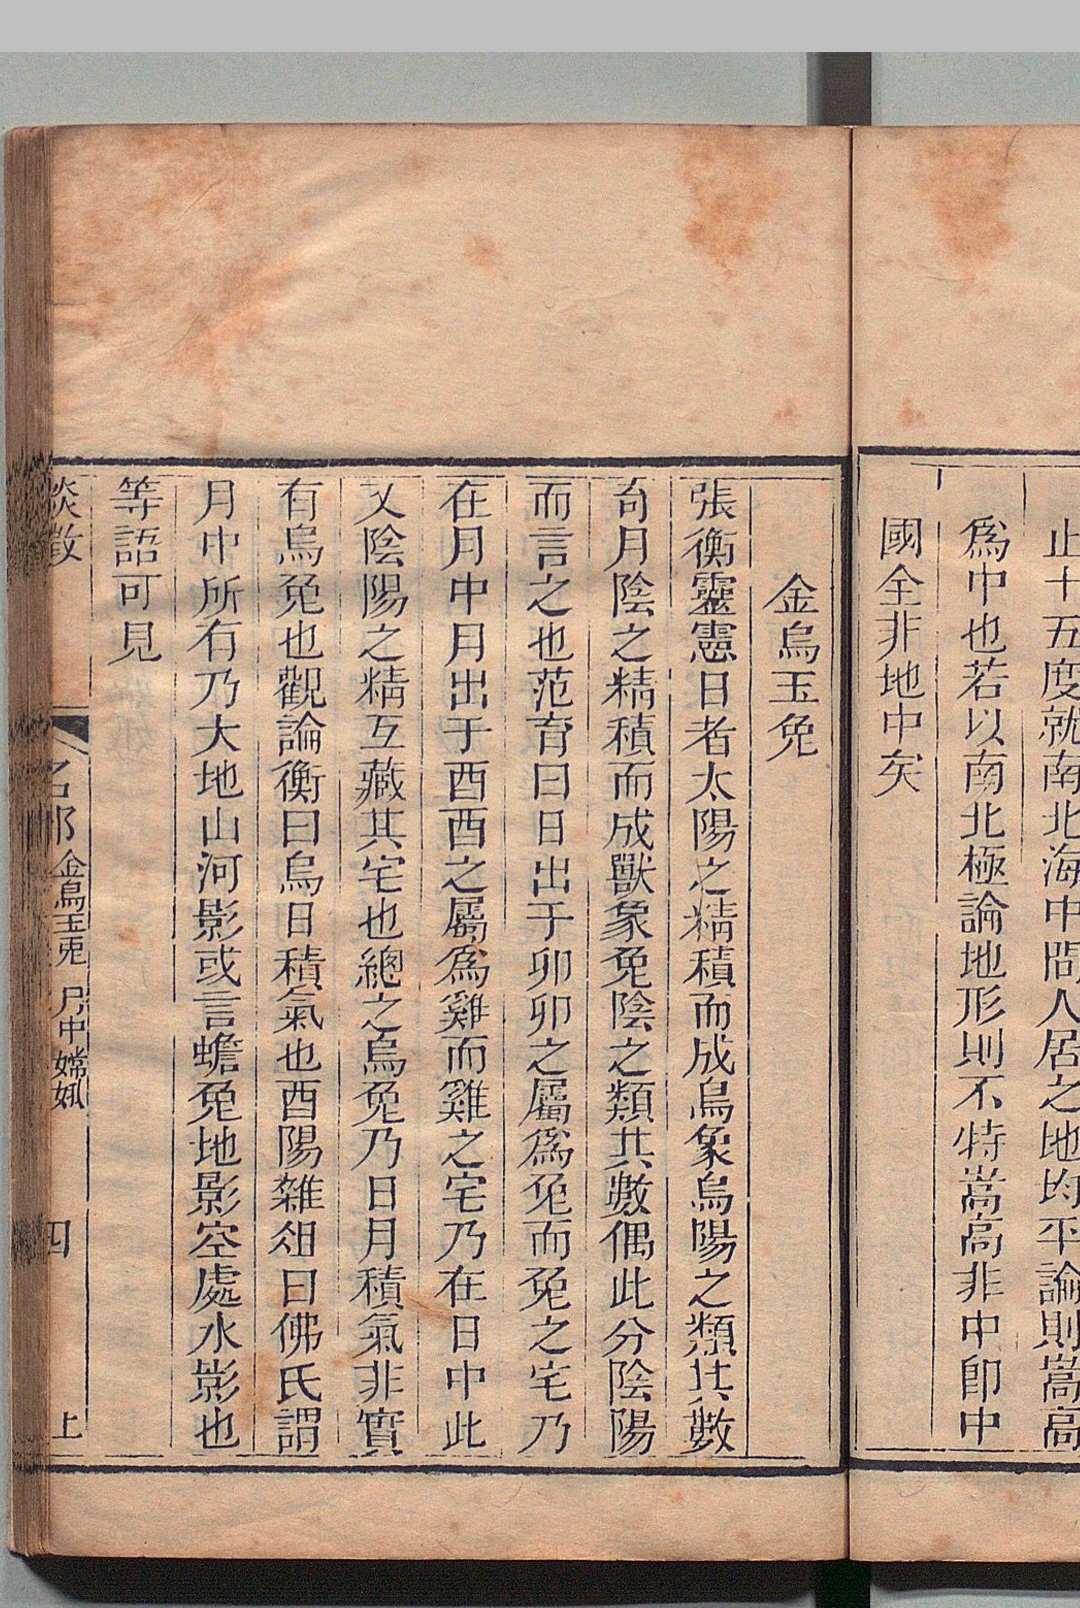 止十五度就南北海中間人居之地均平論則嵩高
爲中也若以南北極論地形則不特嵩高非中即中
國全非地中矣
金烏玉兔
張衡靈憲日者太陽之精積而成烏象烏陽之類其數
奇月陰之精積而成獸象兔陰之類其數偶此分陰陽
而言之也范育曰日出于卯卯之屬爲兔而兔之宅乃
在月中月出于酉酉之屬爲雞而雞之宅乃在日中此
又陰陽之精互藏其宅也總之烏兔乃日月積氣非實
有烏兔也觀論衡曰烏日積氣也酉陽雜俎曰佛氏謂
月中所有乃大地山河影或言蟾兔地影空處水影也
等語可見
談徵
名部 金烏玉兎 月中嫦娥
四
上